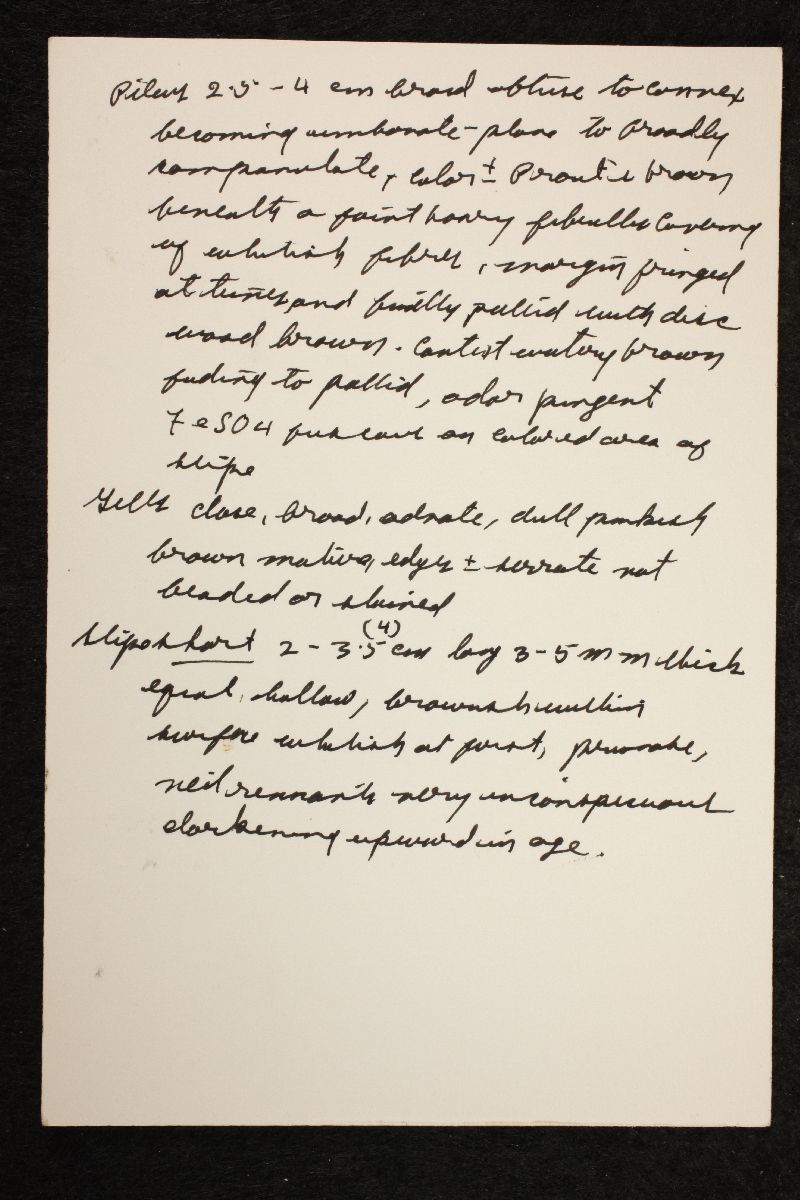 Pileus 2.5 - 4 cm broad obtuse to convex
becoming umbonate-plane to broadly
campanulate, color ± Prout's brown
beneath a faint hoary fibrillose covering
of whitish fibres, margin fringed
at times and finally pallid with disc
wood brown. Context watery brown
fading to pallid, odor pungent
FeSO4 on colored area of
stipe
Gills close, broad, adnate, dull pinkish
brown mature, edges ± serrate not
beaded or stained
Stipe short 2 - 3.5 (4) cm long 3-5 mm thick
equal, hollow, brownish within
surface whitish at first, pruinose,
veil remnants very inconspicuous
darkening upward in age.